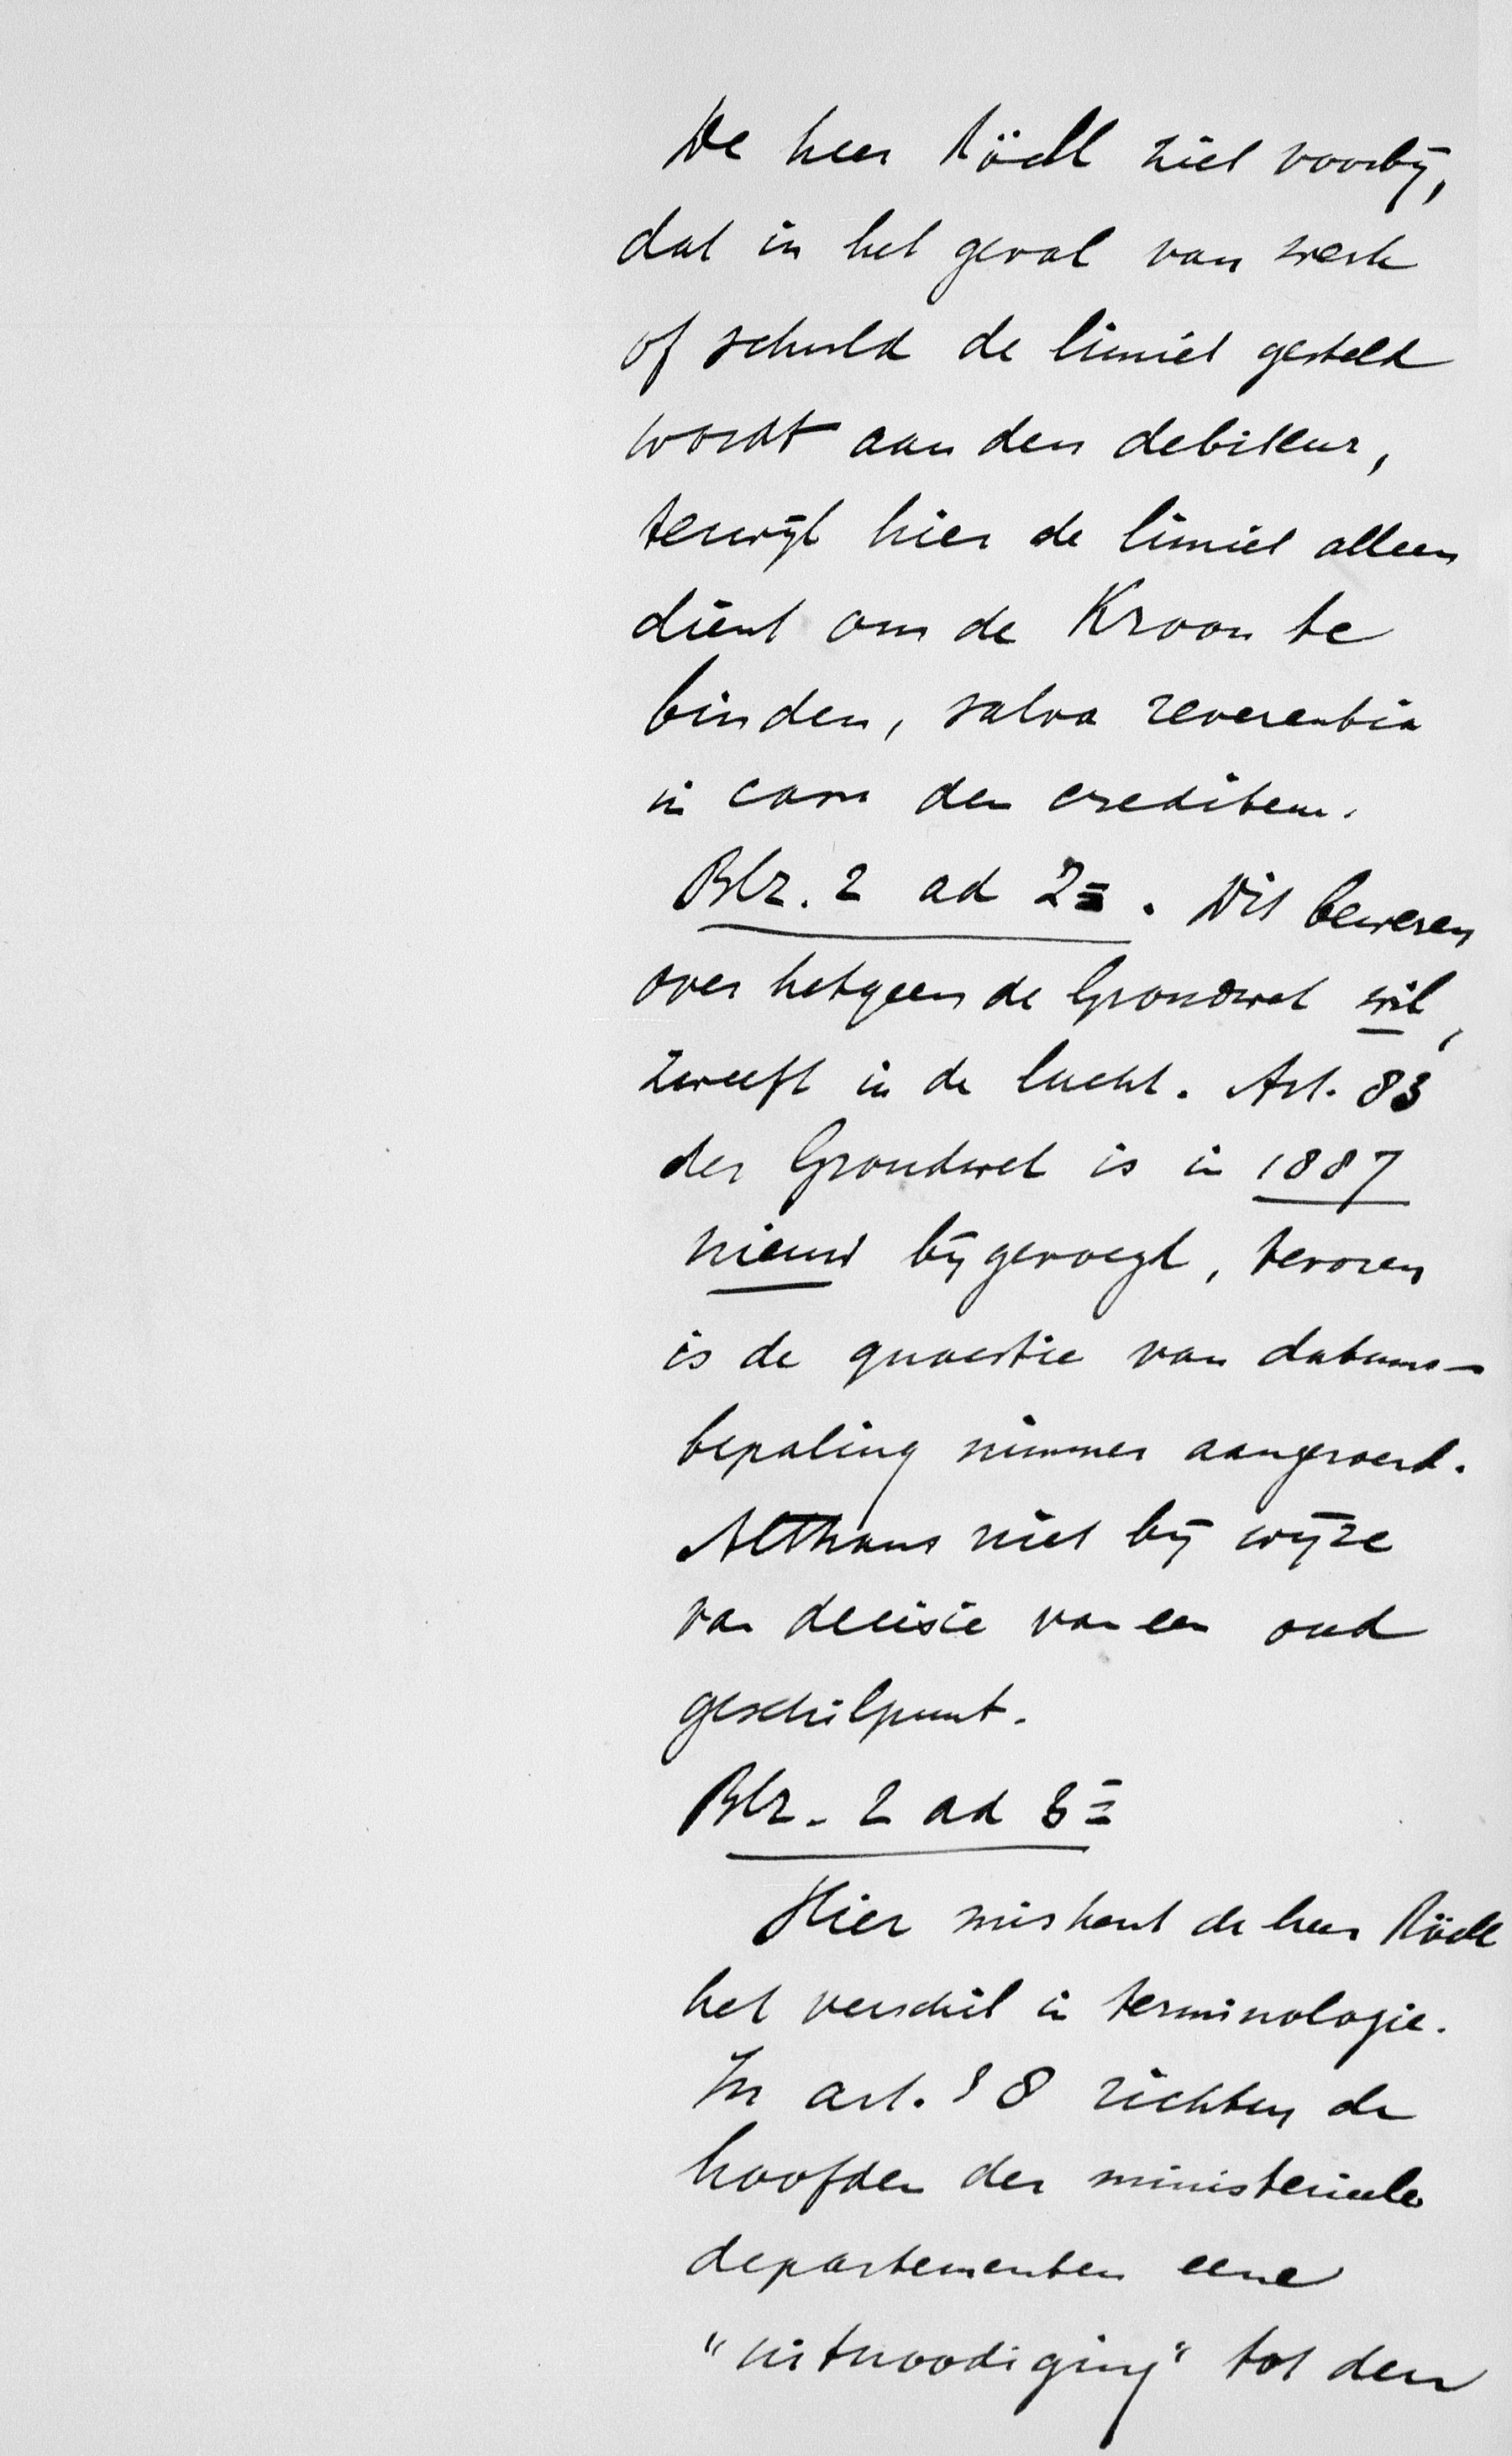 De heer Röell ziet voorbij,
dat in het geval van werk
of schuld de limiet gesteld
wordt aan den debiteur,
terwijl hier de limiet alleen
dient om de Kroon te
binden, salva reverentia
in casu den crediteur.
Blz. 2 ad 2=. Dit beweren
over hetgeen de Grondwet wil,
zweeft in de lucht. Art. 83
der Grondwet is in 1887
nieuw bijgevoegd, tevoren
is de quaestie van datums-
bepaling nimmer aangeroerd.
Althans niet bij wijze
van decisie van een oud
geschilpunt.
Blz. 2 ad 3=
Hier miskent de heer Röell
het verschil in terminologie.
In art. 38 richten de
hoofden der ministerieele
departementen eene
"uitnoodiging" tot den